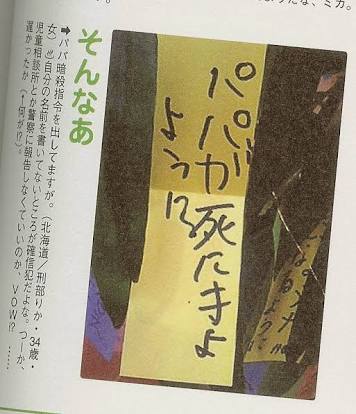 な、ミカ。
そんなあ
パパが死にますよ
ように
➡パパ暗殺指令を出してますが。(北海道/刑部りか・34歳・
女)♨自分の名前を書いてないところが確信犯だよな。つーか、
児童相談所とか警察に報告しなくていいのか、VOW!? ……
遅かったか(↑何が!?)。